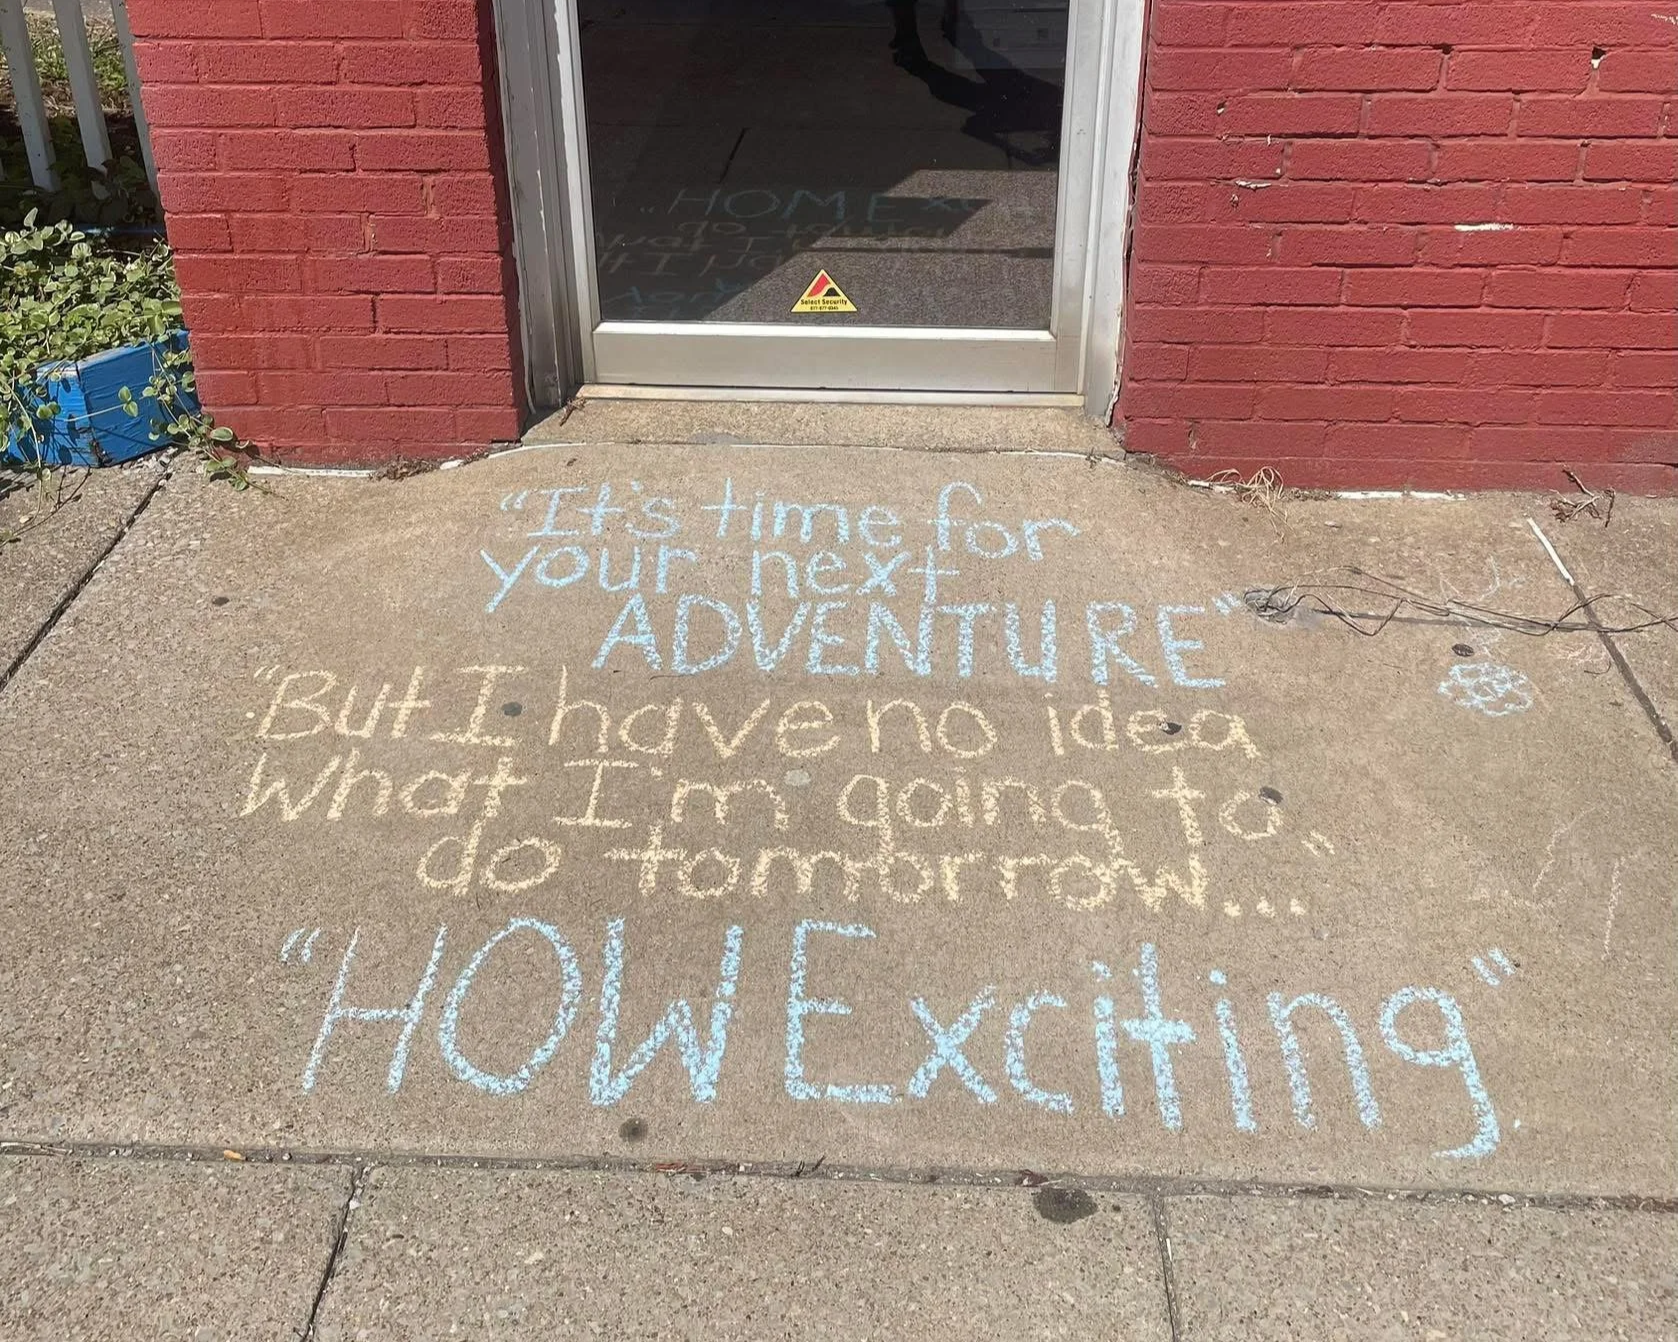 Select Security
"It's time for
your next
ADVENTURE"
"But I have no idea
What I'm going to
do tomorrow..."
"HOW Exciting"